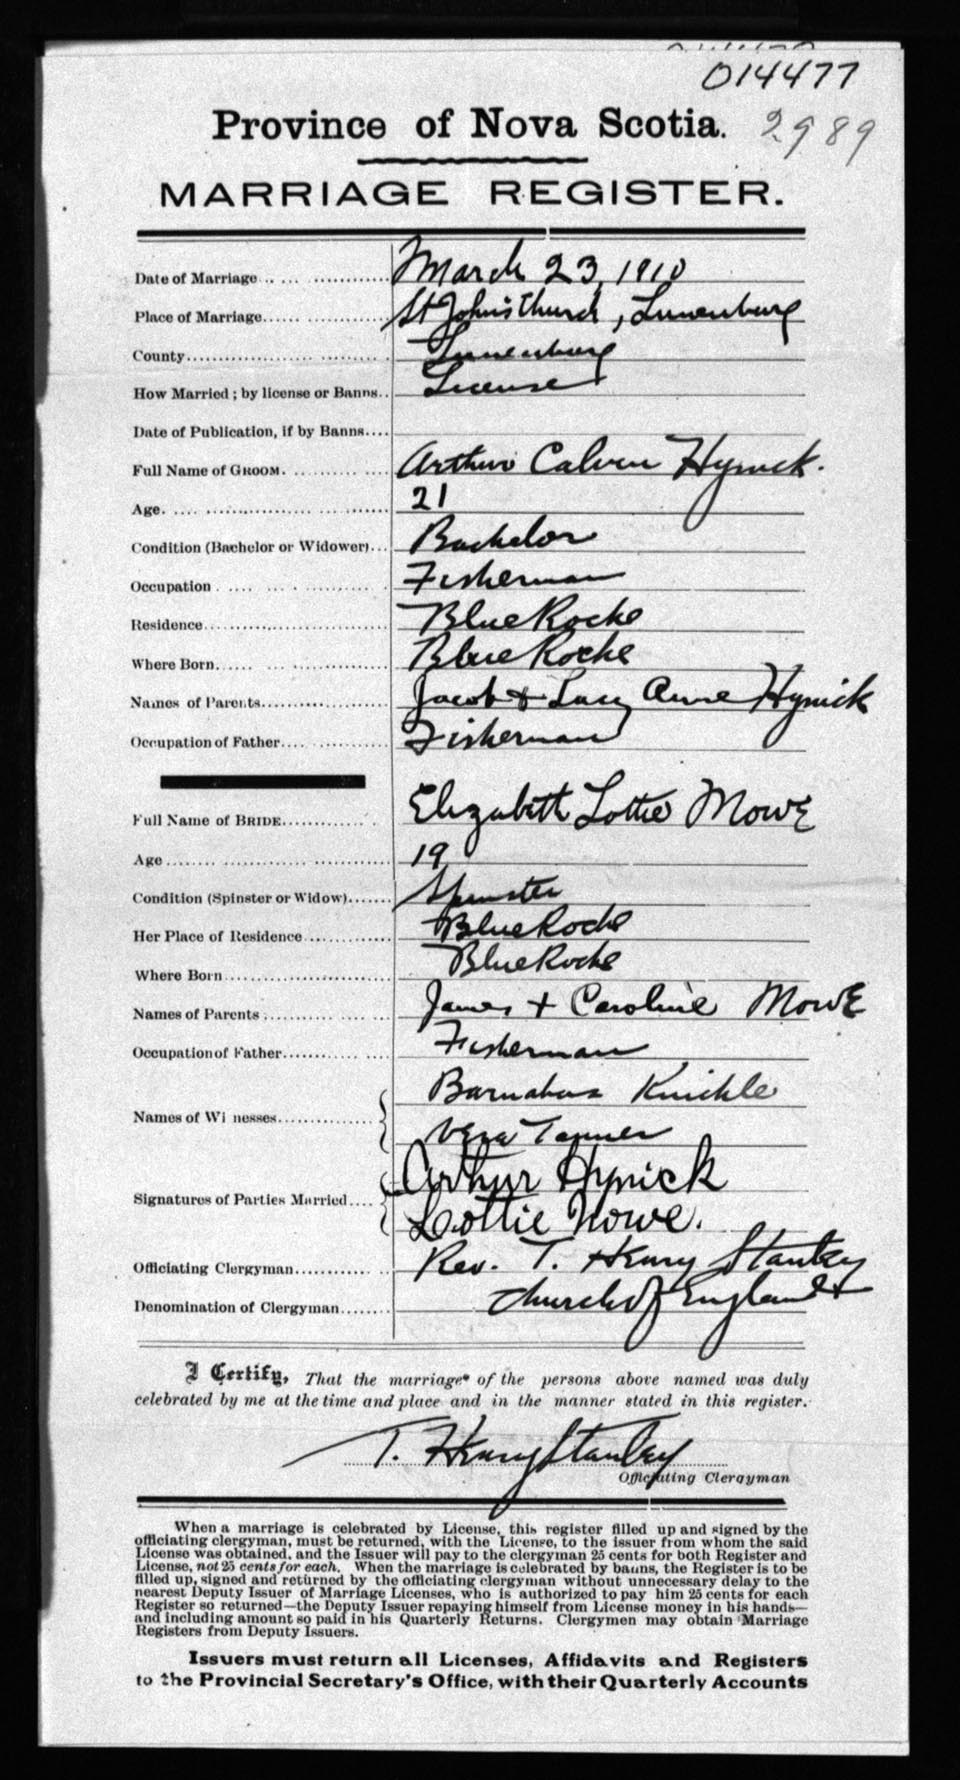 014477
Province of Nova Scotia. 2989
MARRIAGE REGISTER.
Date of Marriage March 23, 1910
Place of Marriage St John's Church, Lunenburg
County Lunenburg
How Married; by license or Banns License
Date of Publication, if by Banns
Full Name of GROOM. Arthur Calvin Hynick.
Age 21
Condition (Bachelor or Widower) Bachelor
Occupation Fisherman
Residence Blue Rocks
Where Born Blue Rocks
Names of Parents Jacob + Lucy Anne Hynick
Occupation of Father Fisherman
Full Name of BRIDE Elizabeth Lottie Mowe
Age 19
Condition (Spinster or Widow) Spinster
Her Place of Residence Blue Rocks
Where Born Blue Rocks
Names of Parents James + Caroline Mowe
Occupation of Father Fisherman
Names of Wi nesses Barnabas Knickle
Vera Tanner
Signatures of Parties Married Arthur Hynick
Lottie Mowe.
Officiating Clergyman Rev. T. Henry Stanley
Denomination of Clergyman Church of England
I Certify, That the marriage of the persons above named was duly
celebrated by me at the time and place and in the manner stated in this register.
T. Henry Stanley
Officiating Clergyman
When a marriage is celebrated by License, this register filled up and signed by the
officiating clergyman, must be returned, with the License, to the issuer from whom the said
License was obtained, and the Issuer will pay to the clergyman 25 cents for both Register and
License, not 25 cents for each. When the marriage is celebrated by banns, the Register is to be
filled up, signed and returned by the officiating clergyman without unnecessary delay to the
nearest Deputy Issuer of Marriage Licenses, who is authorized to pay him 25 cents for each
Register so returned—the Deputy Issuer repaying himself from License money in his hands—
and including amount so paid in his Quarterly Returns. Clergymen may obtain Marriage
Registers from Deputy Issuers.
Issuers must return all Licenses, Affidavits and Registers
to the Provincial Secretary's Office, with their Quarterly Accounts